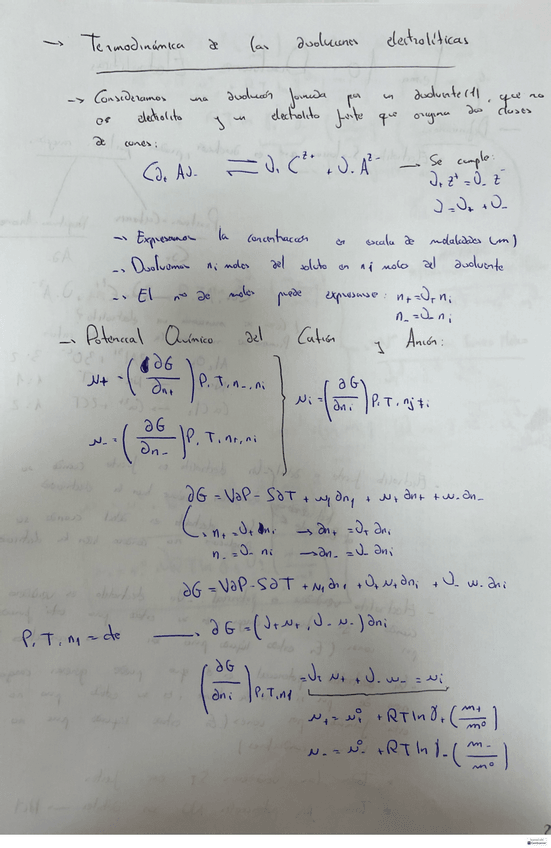 → Termodinámica de las disoluciones electrolíticas
→ Consideramos una disolución formada por un disolvente (1), que no
es electrolito y un electrolito fuerte que origina dos clases
de iones:
Cν+ Aν- ⇌ ν+ C^z+ + ν- A^z- → Se cumple:
ν+ z+ = ν- z-
ν = ν+ + ν-
→ Expresamos la concentración en escala de molalidades (m)
→ Disolvemos ni moles del soluto en n1 moles del disolvente
→ El no de moles puede expresarse: n+ = ν+ ni
n- = ν- ni
→ Potencial Químico del Catión y Anión:
μ+ = (∂G/∂n+) P, T, n-, ni
μi = (∂G/∂ni) P, T, nj≠i
μ- = (∂G/∂n-) P, T, n+, ni
∂G = V∂P - S∂T + μ1 ∂n1 + μ+ ∂n+ + μ- ∂n-
n+ = ν+ ni → ∂n+ = ν+ ∂ni
n- = ν- ni → ∂n- = ν- ∂ni
∂G = V∂P - S∂T + μ1 ∂n1 + ν+ μ+ ∂ni + ν- μ- ∂ni
P, T, n1 = cte → ∂G = (ν+ μ+, ν- μ-) ∂ni
(∂G/∂ni) P, T, n1 = ν+ μ+ + ν- μ- = μi
μ+ = μ+° + RT ln γ+ (m+/m°)
μ- = μ-° + RT ln γ- (m-/m°)